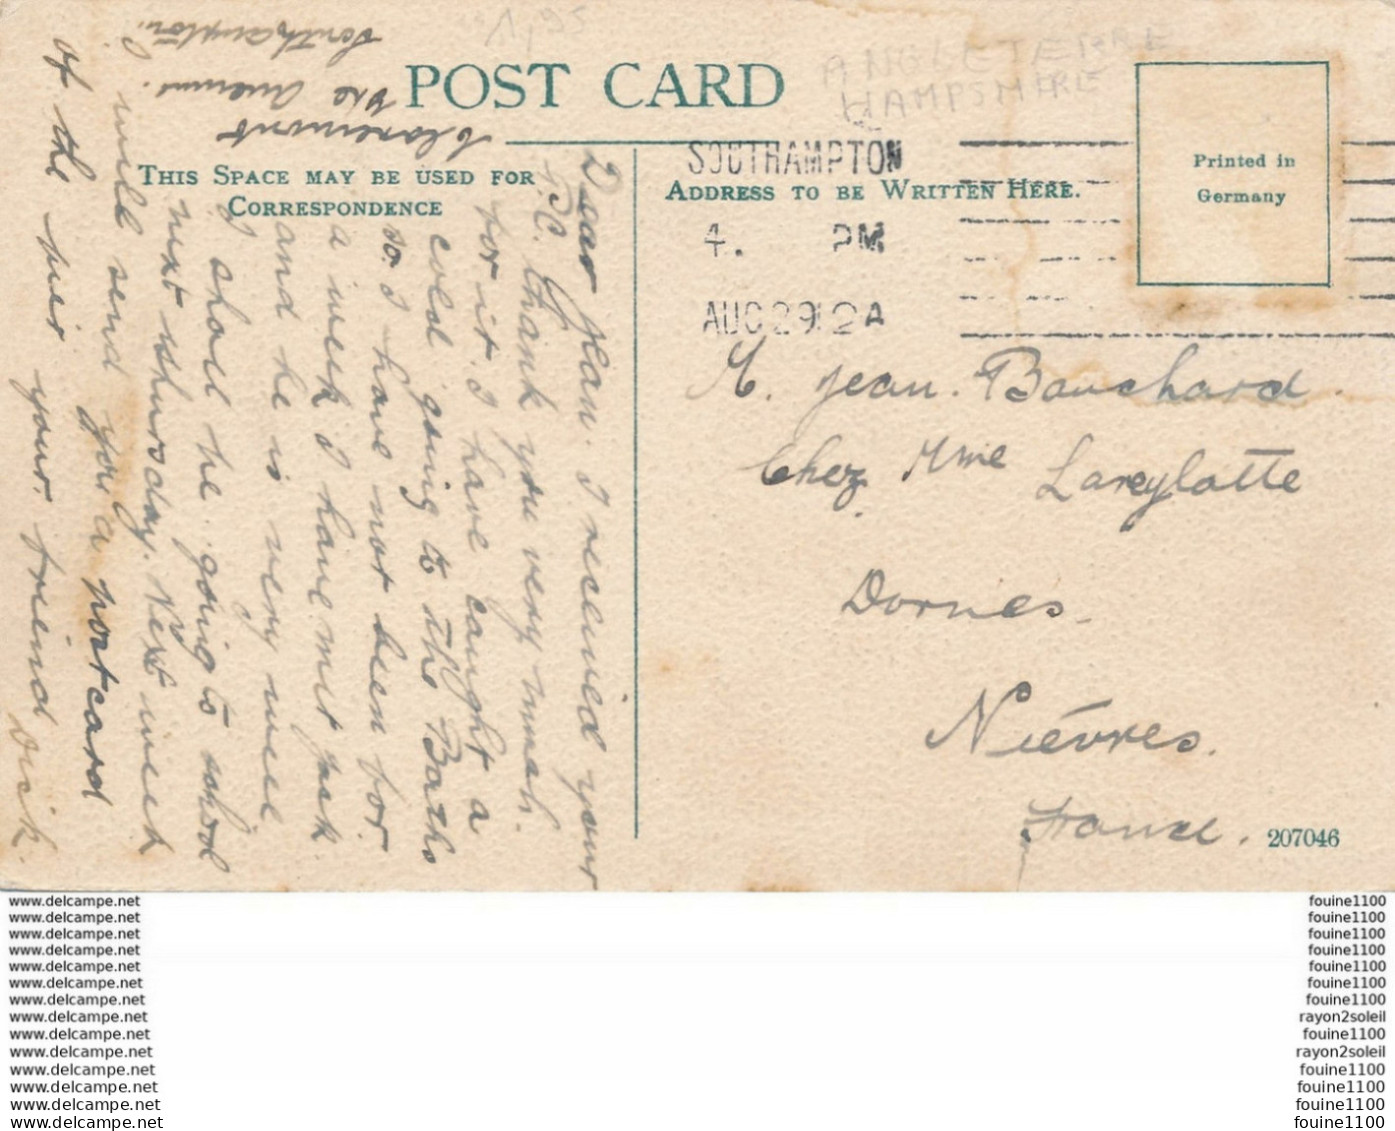 1,95
ANGLETERRE
HAMPSHIRE
POST CARD
THIS SPACE MAY BE USED FOR
CORRESPONDENCE
ADDRESS TO BE WRITTEN HERE.
Printed in
Germany
SOUTHAMPTON
4. PM
AUG 29 12 A
Claremont
The Avenue.
Southampton.
Dear Jean. I received your
P.C. thank you very much.
for it. I have caught a
cold going to the Baths
so I have not been for
a week I have met Jack
and he is very nice
I shall be going to school
next Thursday. Next week
I will send you a postcard
of the pier your friend Dick.
M. Jean. Bauchard.
Chez Mme Lareylotte
Dornes.
Nièvres.
France.
207046
www.delcampe.net
www.delcampe.net
www.delcampe.net
www.delcampe.net
www.delcampe.net
www.delcampe.net
www.delcampe.net
www.delcampe.net
www.delcampe.net
www.delcampe.net
www.delcampe.net
www.delcampe.net
www.delcampe.net
www.delcampe.net
fouine1100
fouine1100
fouine1100
fouine1100
fouine1100
fouine1100
fouine1100
rayon2soleil
fouine1100
rayon2soleil
fouine1100
fouine1100
fouine1100
fouine1100